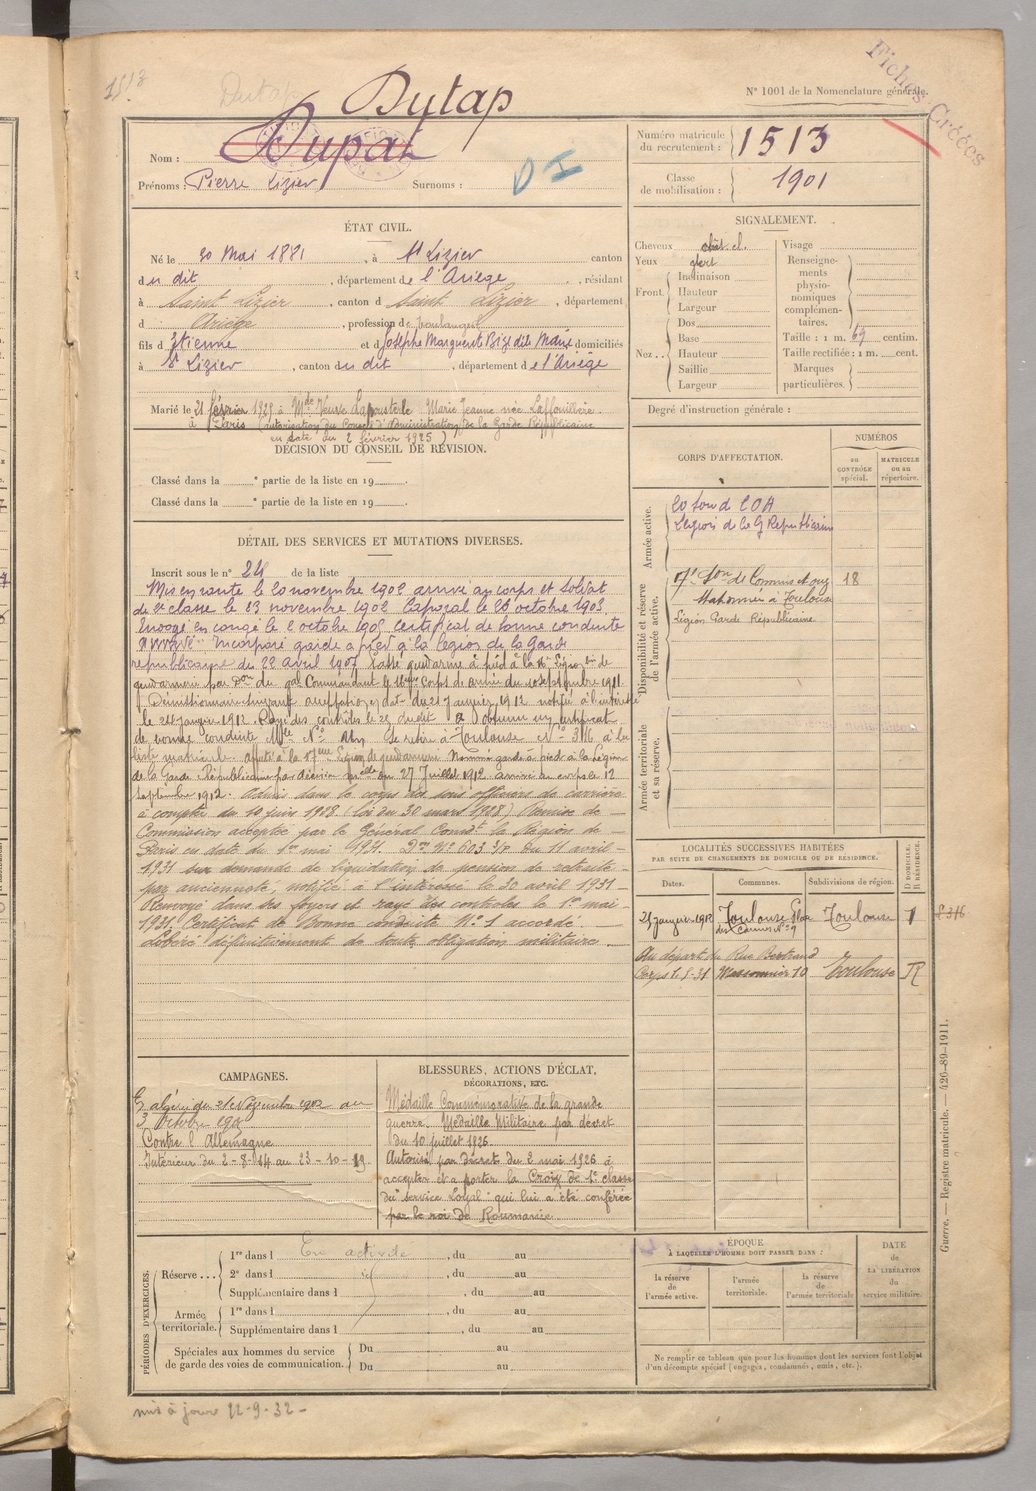 1513
Dutap
Dutap
N° 1001 de la Nomenclature générale.
Fiches Créées
Nom : Dupat
Prénoms : Pierre Lizier Surnoms :
Numéro matricule du recrutement : 1513
Classe de mobilisation : 1901
ÉTAT CIVIL.
Né le 30 Mai 1881, à St Lizier canton
du dit, département de l'Ariège, résidant
à Saint Lizier, canton de Saint Lizier, département
d Ariège, profession de boulanger
fils d'Etienne et de Josèphe Marguerit domiciliés
à St Lizier, canton du dit, département de l'Ariège
Marié le 21 février 1925 à Mde Veuve Marie Jeanne née
à Paris (autorisation du Conseil d'Administration de la Garde Républicaine
en date du 2 février 1925)
DÉCISION DU CONSEIL DE RÉVISION.
Classé dans la e partie de la liste en 19 .
Classé dans la e partie de la liste en 19 .
DÉTAIL DES SERVICES ET MUTATIONS DIVERSES.
Inscrit sous le n° 24 de la liste
Mis en route le 20 novembre 1902 arrivé au corps et soldat
de 2e classe le 23 novembre 1902 Caporal le 26 octobre 1903
Envoyé en congé le 2 octobre 1905 Certificat de bonne conduite
Incorporé garde à pied à la Légion de la Garde
républicaine du 22 avril 1907 Passé gendarme à pied à la 16e Légion de
gendarmerie par Don du gal Commandant le 16ème Corps d'armée du 10 septembre 1911
Démissionnaire acceptation en date du 21 janvier 1912 notifié à l'intéressé
le 24 janvier 1912. Rayé des contrôles le 25 du dit. a obtenu un certificat
de bonne conduite Se retire à Toulouse N° 316 à la
liste matricule. Affecté à la 17ème Légion de gendarmerie Nommé garde à pied à la Légion
de la Garde Républicaine par décision mlle du 27 Juillet 1912 arrivé au corps le 12
Septembre 1912. Admis dans le corps des sous officiers de carrière
à compter du 10 juin 1928 (loi du 30 mars 1928) Remise de
Commission acceptée par le Général Commdt la Région de
Paris en date du 1er mai 1931. Don N° 603 3/P du 11 avril
1931 sur demande de liquidation de pension de retraite
par ancienneté, notifié à l'intéressé le 30 avril 1931
Renvoyé dans ses foyers et rayé des contrôles le 1er mai
1931. Certificat de Bonne conduite N° 1 accordé.
Libéré définitivement de toute obligation militaire.
SIGNALEMENT.
Cheveux chât. cl.
Yeux
Front. Inclinaison
Hauteur
Largeur
Nez... Dos
Base
Hauteur
Saillie
Largeur
Visage
Renseignements physionomiques complémentaires.
Taille : 1 m. 69 centim.
Taille rectifiée : 1 m. cent.
Marques particulières.
Degré d'instruction générale :
CORPS D'AFFECTATION.
NUMÉROS
au CONTRÔLE spécial.
MATRICULE ou au répertoire.
Armée active.
20 Son de COA
Légion de la G Républicaine
Disponibilité et réserve de l'armée active.
17e Son de Commis et ouv 18
Stationnée à Toulouse
Légion Garde Républicaine
Armée territoriale et sa réserve.
LOCALITÉS SUCCESSIVES HABITÉES
PAR SUITE DE CHANGEMENTS DE DOMICILE OU DE RÉSIDENCE.
Dates. Communes. Subdivisions de région. D DOMICILE. R RÉSIDENCE.
25 janvier 1912 Toulouse Place des Carmes N° 29 Toulouse
R 316
Au départ du Rue Bertrand
Corps 1-5-31 10 Toulouse R
CAMPAGNES.
Algérie du 21 Novembre 1902 au
3 Octobre 1905
Contre l'Allemagne
Intérieur du 2-8-14 au 23-10-19
BLESSURES, ACTIONS D'ÉCLAT,
DÉCORATIONS, ETC.
Médaille Commémorative de la grande
guerre. Médaille Militaire par décret
du 10 juillet 1926.
Autorisé par décret du 2 mai 1926 à
accepter et à porter la Croix de 1e classe
du "service Loyal" qui lui a été conférée
par le roi de Roumanie.
PÉRIODES D'EXERCICES.
Réserve... 1re dans l En activité, du au
2e dans l , du au
Supplémentaire dans l , du au
Armée territoriale. 1re dans l , du au
Supplémentaire dans l , du au
Spéciales aux hommes du service de garde des voies de communication. Du au
Du au
ÉPOQUE
À LAQUELLE L'HOMME DOIT PASSER DANS :
la réserve de l'armée active.
l'armée territoriale.
la réserve de l'armée territoriale
DATE de LA LIBÉRATION du service militaire.
Ne remplir ce tableau que pour les hommes dont les services font l'objet
d'un décompte spécial (engagés, condamnés, omis, etc.).
Guerre. — Registre matricule. — 426-89-1911.
mis à jour 22-9-32-